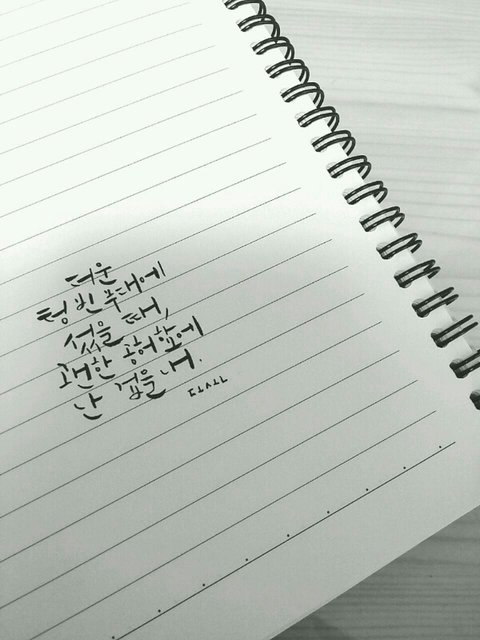 더운
텅 빈 무대에
섰을 때,
괜한 공허함에
난 겁을 내.